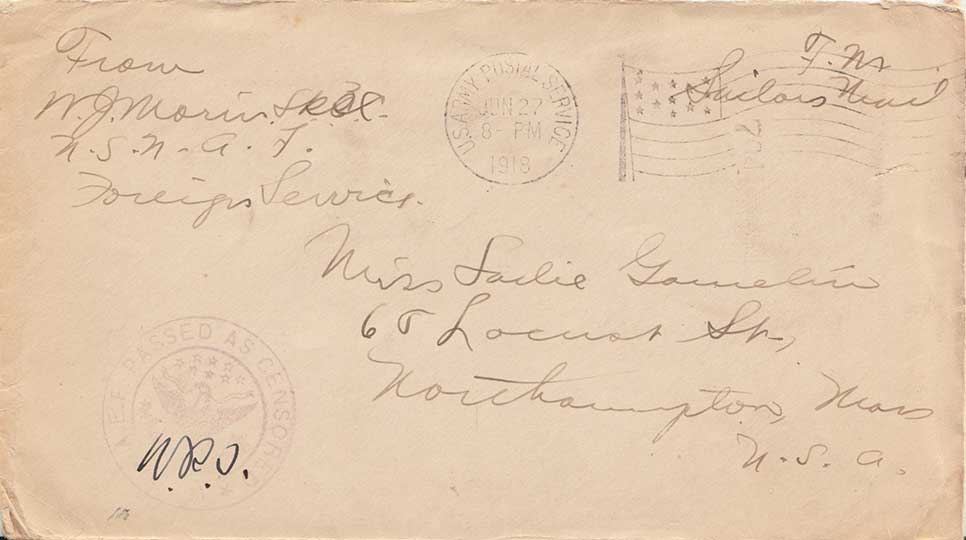 From
W. J. Morin. Sk 3 cl.
U. S. N. A. F.
Foreign Service.
U.S. ARMY POSTAL SERVICE
JUN 27
8- PM
1918
Sailors Mail
Miss Sadie Gamelin
68 Locust St.,
Northampton, Mass
U. S. A.
A.E.F. PASSED AS CENSORED